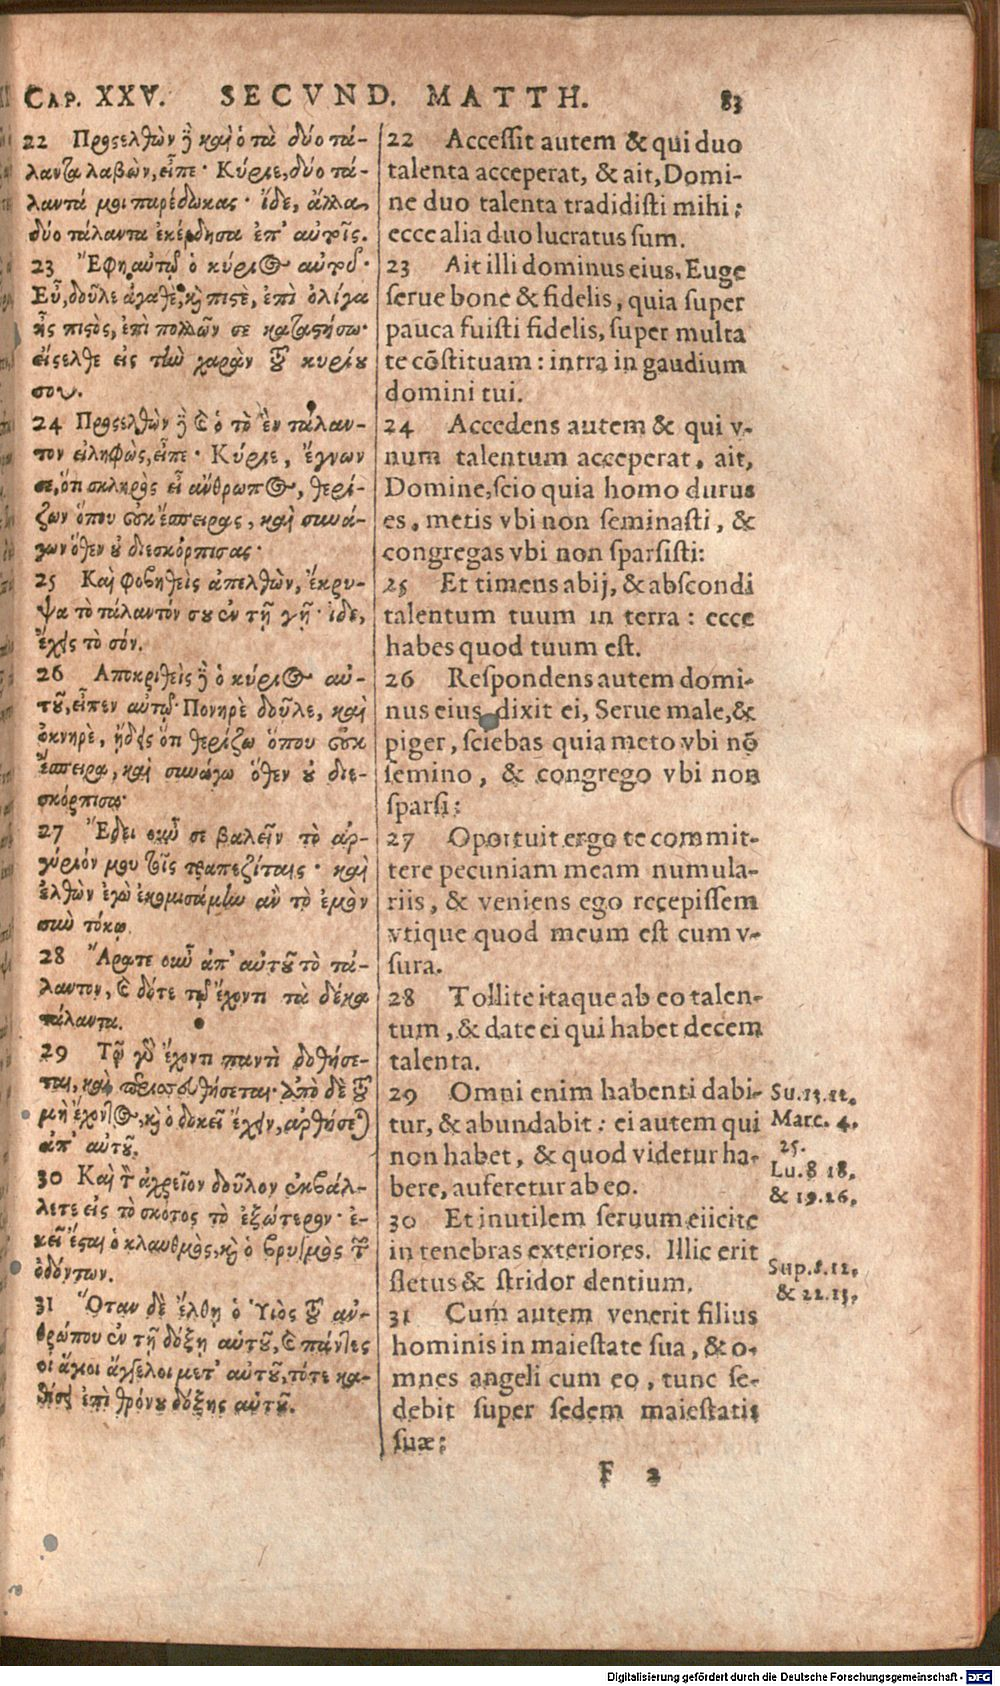 CAP. XXV. SECVND. MATTH. 83
22 Προσελθὼν δὲ καὶ ὁ τὰ δύο τά-
λαντα λαβὼν, εἶπε· Κύριε, δύο τά-
λαντά μοι παρέδωκας· ἴδε, ἄλλα
δύο τάλαντα ἐκέρδησα ἐπ' αὐτοῖς.
23 Ἔφη αὐτῷ ὁ κύριος αὐτοῦ·
Εὖ, δοῦλε ἀγαθὲ, καὶ πιστὲ, ἐπὶ ὀλίγα
ἦς πιστὸς, ἐπὶ πολλῶν σε καταστήσω·
εἴσελθε εἰς τὴν χαρὰν τοῦ κυρίου
σου.
24 Προσελθὼν δὲ καὶ ὁ τὸ ἓν τάλαν-
τον εἰληφὼς, εἶπε· Κύριε, ἔγνων
σε, ὅτι σκληρὸς εἶ ἄνθρωπος, θερί-
ζων ὅπου οὐκ ἔσπειρας, καὶ συνά-
γων ὅθεν οὐ διεσκόρπισας·
25 Καὶ φοβηθεὶς ἀπελθὼν, ἔκρυ-
ψα τὸ τάλαντόν σου ἐν τῇ γῇ· ἴδε,
ἔχεις τὸ σόν.
26 Αποκριθεὶς δὲ ὁ κύριος αὐ-
τοῦ, εἶπεν αὐτῷ· Πονηρὲ δοῦλε, καὶ
ὀκνηρὲ, ᾔδεις ὅτι θερίζω ὅπου οὐκ
ἔσπειρα, καὶ συνάγω ὅθεν οὐ διε-
σκόρπισα·
27 Ἔδει οὖν σε βαλεῖν τὸ ἀρ-
γύριόν μου τοῖς τραπεζίταις· καὶ
ἐλθὼν ἐγὼ ἐκομισάμην ἂν τὸ ἐμὸν
σὺν τόκῳ.
28 Ἄρατε οὖν ἀπ' αὐτοῦ τὸ τά-
λαντον, καὶ δότε τῷ ἔχοντι τὰ δέκα
τάλαντα.
29 Τῷ γὰρ ἔχοντι παντὶ δοθήσε-
ται, καὶ περισσευθήσεται· ἀπὸ δὲ τοῦ
μὴ ἔχοντος, καὶ ὁ δοκεῖ ἔχειν, ἀρθήσεται
ἀπ' αὐτοῦ.
30 Καὶ τὸν ἀχρεῖον δοῦλον ἐκβάλ-
λετε εἰς τὸ σκότος τὸ ἐξώτερον· ἐ-
κεῖ ἔσται ὁ κλαυθμὸς, καὶ ὁ βρυγμὸς τῶν
ὀδόντων.
31 Ὅταν δὲ ἔλθῃ ὁ Ὑιὸς τοῦ ἀν-
θρώπου ἐν τῇ δόξῃ αὐτοῦ, καὶ πάντες
οἱ ἅγιοι ἄγγελοι μετ' αὐτοῦ, τότε κα-
θίσει ἐπὶ θρόνου δόξης αὐτοῦ.
22 Accessit autem & qui duo
talenta acceperat, & ait, Domi-
ne duo talenta tradidisti mihi:
ecce alia duo lucratus sum.
23 Ait illi dominus eius, Euge
serue bone & fidelis, quia super
pauca fuisti fidelis, super multa
te cōstituam: intra in gaudium
domini tui.
24 Accedens autem & qui v-
num talentum acceperat, ait,
Domine, scio quia homo durus
es, metis vbi non seminasti, &
congregas vbi non sparsisti:
25 Et timens abij, & abscondi
talentum tuum in terra: ecce
habes quod tuum est.
26 Respondens autem domi-
nus eius dixit ei, Serue male, &
piger, sciebas quia meto vbi nō
semino, & congrego vbi non
sparsi:
27 Oportuit ergo te commit-
tere pecuniam meam numula-
riis, & veniens ego recepissem
vtique quod meum est cum v-
sura.
28 Tollite itaque ab eo talen-
tum, & date ei qui habet decem
talenta.
29 Omni enim habenti dabi-
tur, & abundabit: ei autem qui
non habet, & quod videtur ha-
bere, auferetur ab eo.
30 Et inutilem seruum eiicite
in tenebras exteriores. Illic erit
fletus & stridor dentium.
31 Cum autem venerit filius
hominis in maiestate sua, & o-
mnes angeli cum eo, tunc se-
debit super sedem maiestatis
suæ:
Su. 13. 12.
Marc. 4.
25.
Lu. 8 18.
& 19. 26.
Sup. 8. 12.
& 22. 13.
F 2
Digitalisierung gefördert durch die Deutsche Forschungsgemeinschaft - DFG